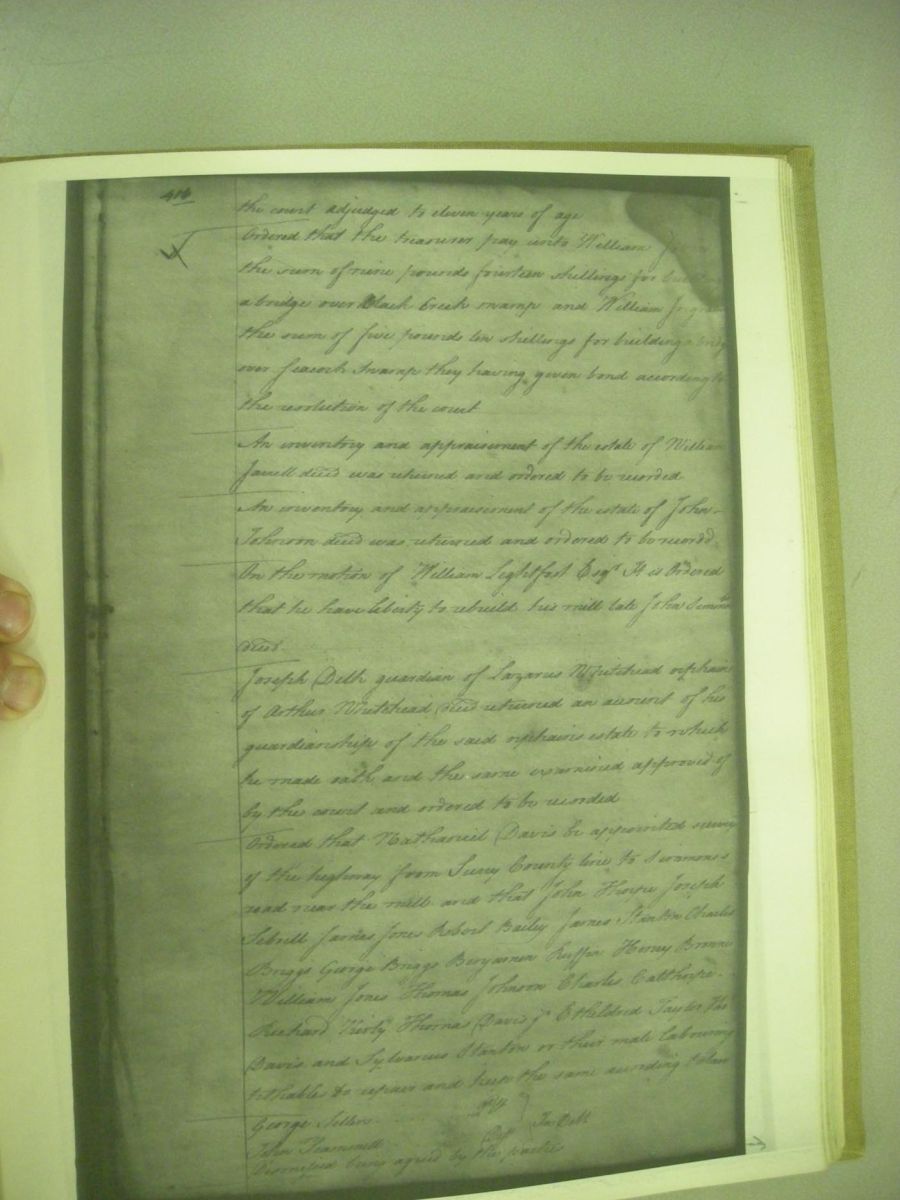 416
the court adjudged to eleven years of age
Ordered that the treasurer pay unto William
the sum of nine pounds fourteen shillings for
a bridge over Black Creek swamp and William
the sum of five pounds ten shillings for building a
over Seacock Swamp they having given bond according to
the resolution of the court
An inventory and appraisement of the estate of William
Jarrell decd was returned and ordered to be recorded
An inventory and appraisement of the estate of John
Johnson decd was returned and ordered to be recorded
On the motion of William Lightfoot Esqr. It is Ordered
that he have liberty to rebuild his mill late John Simmons
decd.
Joseph Delk guardian of Lazarus Whitehead orphan
of Arthur Whitehead decd returned an account of his
guardianship of the said orphans estate to which
he made oath and the same examined approved of
by the court and ordered to be recorded
Ordered that Nathaniel Davis be appointed
of the highway from Surry County line to Simmons's
road near the mill and that John Thorpe Joseph
Sebrell James Jones Robert Bailey James Stanton Charles
Briggs George Briggs Benjamin Ruffin Henry Browne
William Jones Thomas Johnson Charles Calthorpe
Richard Kirby Thomas Davis jr. Etheldred Taylor
Davis and Sylvanus Stanton or their male labouring
tithables do repair and keep the same according to law
George
In
John
Dismissed being agreed by the parties